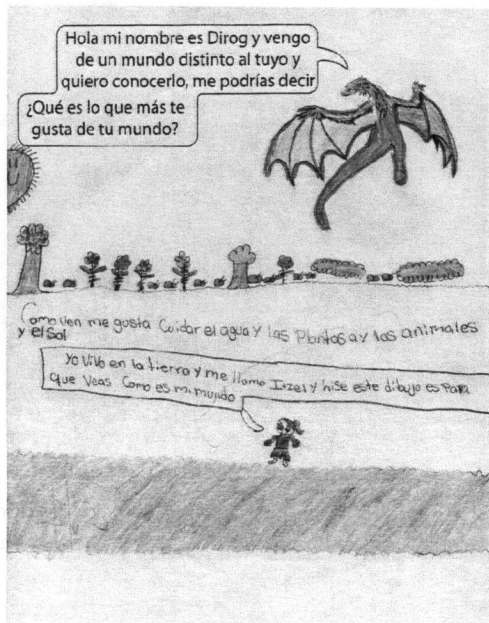 Hola mi nombre es Dirog y vengo
de un mundo distinto al tuyo y
quiero conocerlo, me podrías decir
¿Qué es lo que más te
gusta de tu mundo?
Como ven me gusta Cuidar el agua Y las Plantas a Y los animales
y el Sol
Yo Vivo en la tierra y me llamo Itzel y hise este dibujo es Para
que Veas Como es mi mundo